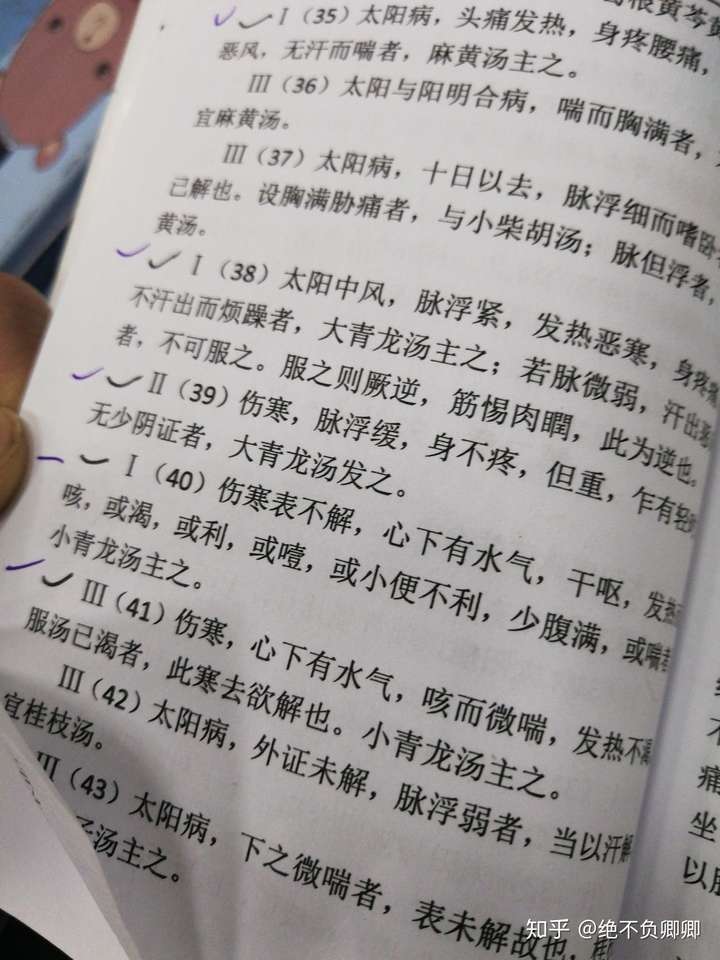 根黄芩黄
I（35）太阳病，头痛发热，身疼腰痛，
恶风，无汗而喘者，麻黄汤主之。
III（36）太阳与阳明合病，喘而胸满者，
宜麻黄汤。
III（37）太阳病，十日以去，脉浮细而嗜卧
已解也。设胸满胁痛者，与小柴胡汤；脉但浮者，
黄汤。
I（38）太阳中风，脉浮紧，发热恶寒，身疼痛
不汗出而烦躁者，大青龙汤主之；若脉微弱，汗出恶
者，不可服之。服之则厥逆，筋惕肉瞤，此为逆也。
II（39）伤寒，脉浮缓，身不疼，但重，乍有轻时
无少阴证者，大青龙汤发之。
I（40）伤寒表不解，心下有水气，干呕，发热而
咳，或渴，或利，或噎，或小便不利，少腹满，或喘者
小青龙汤主之。
III（41）伤寒，心下有水气，咳而微喘，发热不渴
服汤已渴者，此寒去欲解也。小青龙汤主之。
III（42）太阳病，外证未解，脉浮弱者，当以汗解
宜桂枝汤。
III（43）太阳病，下之微喘者，表未解故也，
子汤主之。
痛
坐
以
知乎 @绝不负卿卿